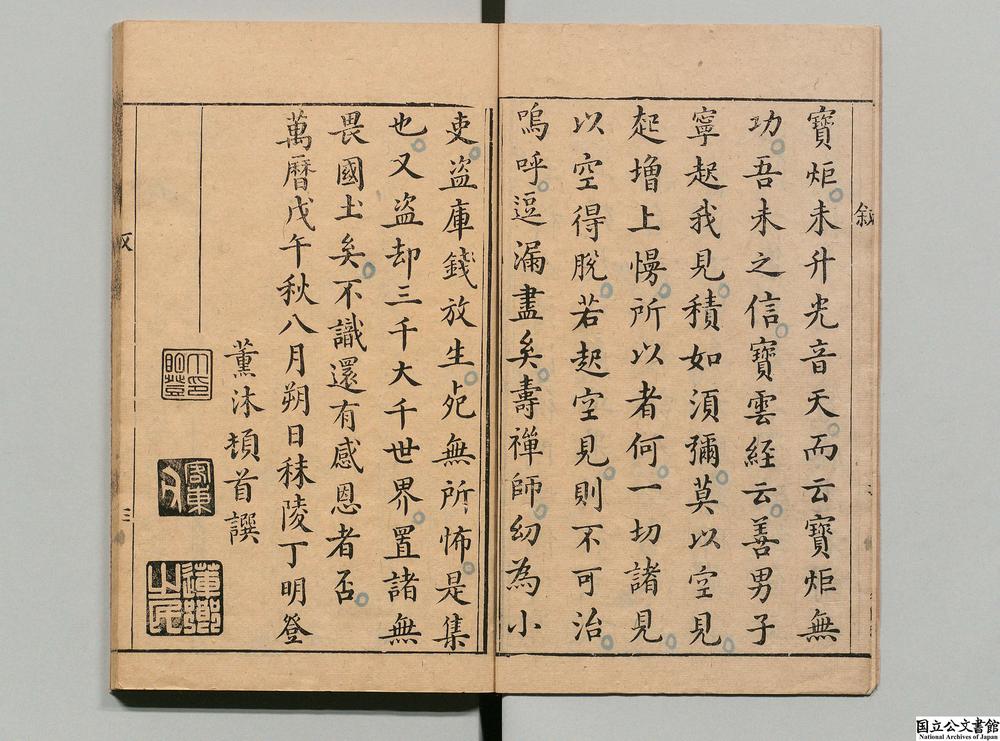 敘
寶炬未升光音天而云寶炬無
功吾未之信寶雲經云善男子
寧起我見積如須彌莫以空見
起増上慢所以者何一切諸見
以空得脫若起空見則不可治
嗚呼逗漏盡矣壽禪師幼為小
吏盜庫錢放生死無所怖是集
也又盜却三千大千世界置諸無
畏國土矣不識還有感恩者否
萬曆戊午秋八月朔日秣陵丁明登
薰沐頓首譔
蓮鄉之民
三
国立公文書館
National Archives of Japan